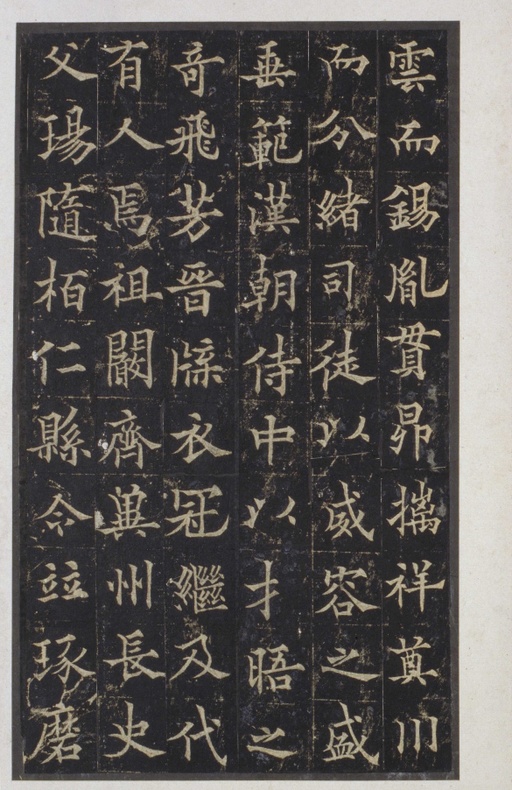 雲而錫胤貫昴擕祥奠川
而分緒司徒以威容之盛
垂範漢朝侍中以才晤之
奇飛芳晉牒衣冠繼及代
有人焉祖闞齊兾州長史
父瑒隨栢仁縣令竝琢磨